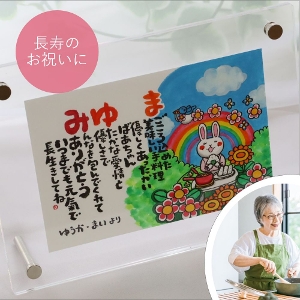 長寿の
お祝いに
まゆみ
こころ込めた
美味しい手料理
優しくあったかい
ばあちゃん
たかな愛情と
優しさで
みんなを包んでくれて
ありがとう
いつまでも元気で
長生きしてね。
ゆうか・まいより